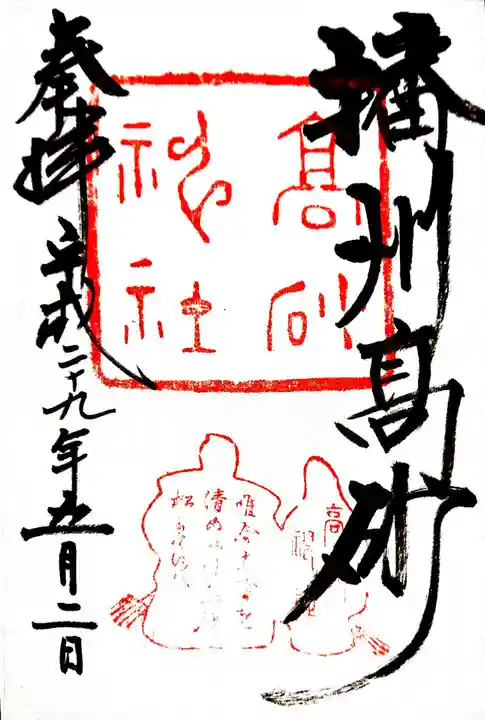 播州高砂
高砂
神社
奉拝
平成二十九年五月二日
高